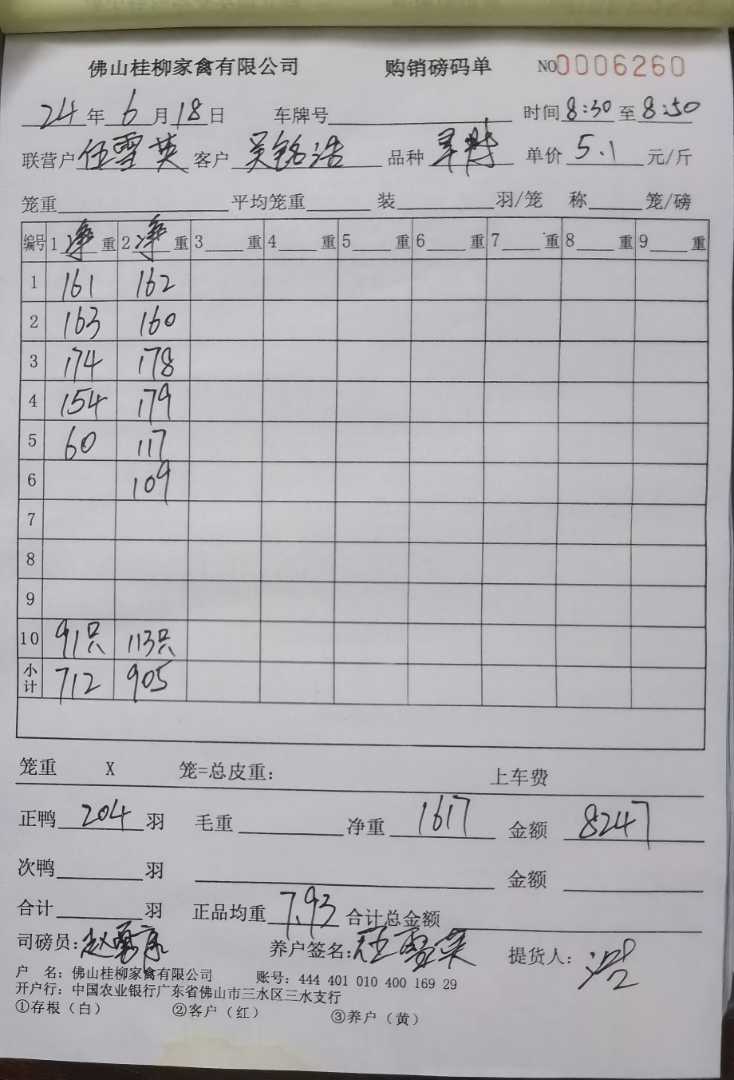 佛山桂柳家禽有限公司 购销磅码单 NO0006260
24年6月18日 车牌号 时间8:30至8:50
联营户伍雪英 客户吴铭浩 品种 单价5.1元/斤
笼重 平均笼重 装 羽/笼 称 笼/磅
编号 1净重 2净重 3重 4重 5重 6重 7重 8重 9重
1 161 162
2 163 160
3 174 178
4 154 179
5 60 117
6 109
7
8
9
10 91只 113只
小计 712 905
笼重 X 笼=总皮重: 上车费
正鸭204羽 毛重 净重1617 金额8247
次鸭 羽 金额
合计 羽 正品均重7.93 合计总金额
司磅员: 养户签名:伍雪英 提货人:浩
户 名: 佛山桂柳家禽有限公司 账号: 444 401 010 400 169 29
开户行: 中国农业银行广东省佛山市三水区三水支行
①存根（白） ②客户（红） ③养户（黄）